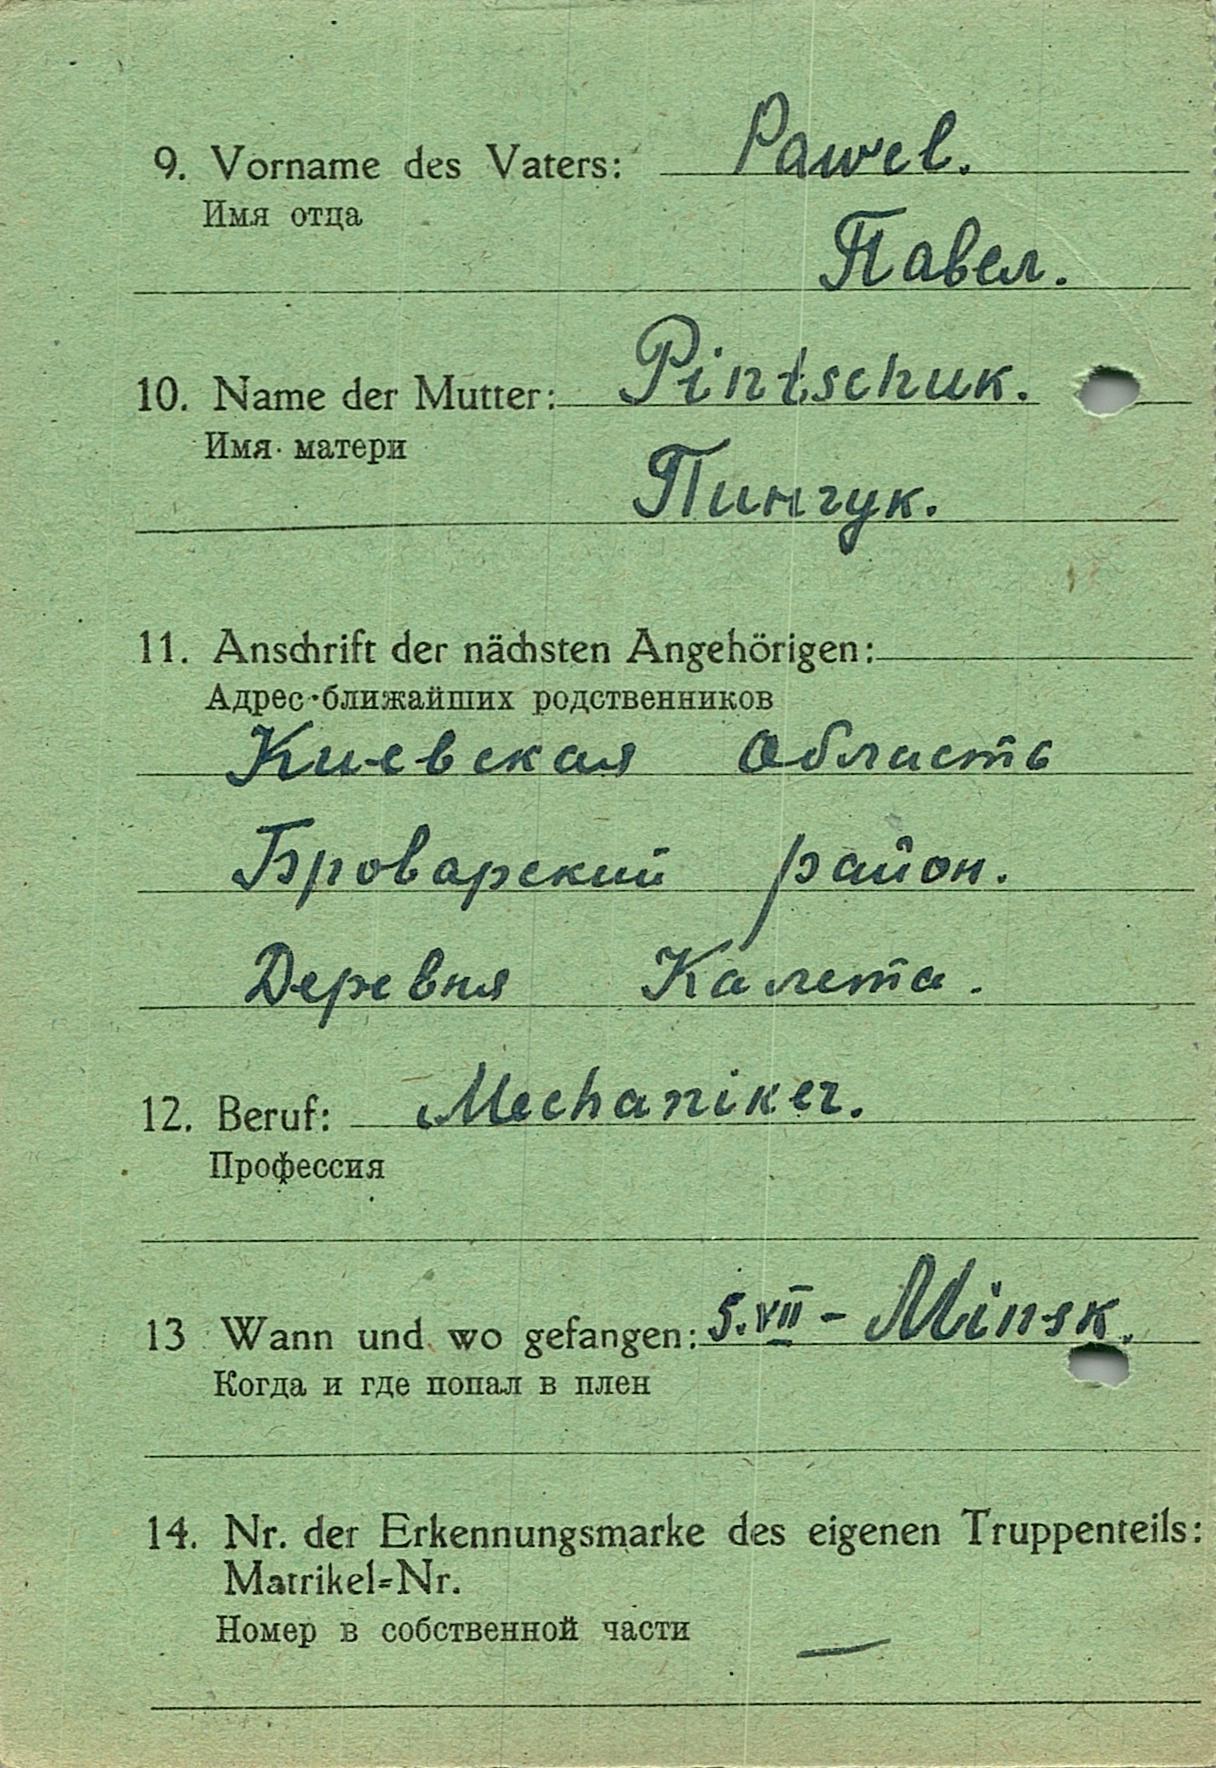 9. Vorname des Vaters: Pawel.
Имя отца
Павел.
10. Name der Mutter: Pintschuk.
Имя матери
Пинчук.
11. Anschrift der nächsten Angehörigen:
Адрес ближайших родственников
Киевская область
Броварский район.
Деревня Калета.
12. Beruf: Mechaniker.
Профессия
13 Wann und wo gefangen: 5.VII – Minsk.
Когда и где попал в плен
14. Nr. der Erkennungsmarke des eigenen Truppenteils:
Matrikel=Nr.
Номер в собственной части —